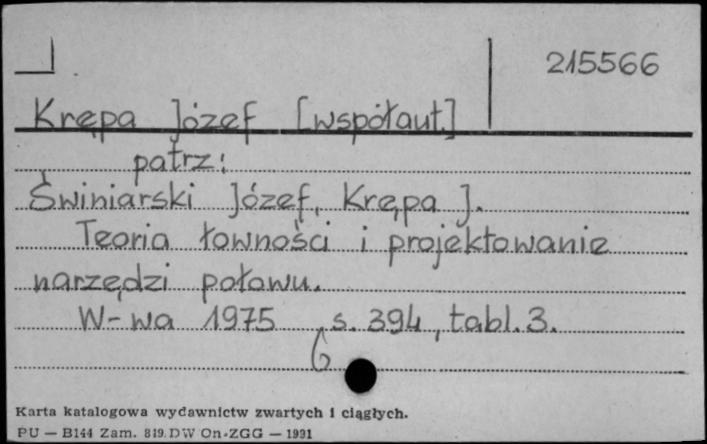 215566
Krępa Józef [współaut.]
patrz:
Świniarski Józef, Krępa J.
Teoria łowności i projektowanie
narzędzi połowu.
W-wa 1975 s. 394, tabl. 3.
6
Karta katalogowa wydawnictw zwartych i ciągłych.
PU — B144 Zam. 819. DW On-ZGG — 1991